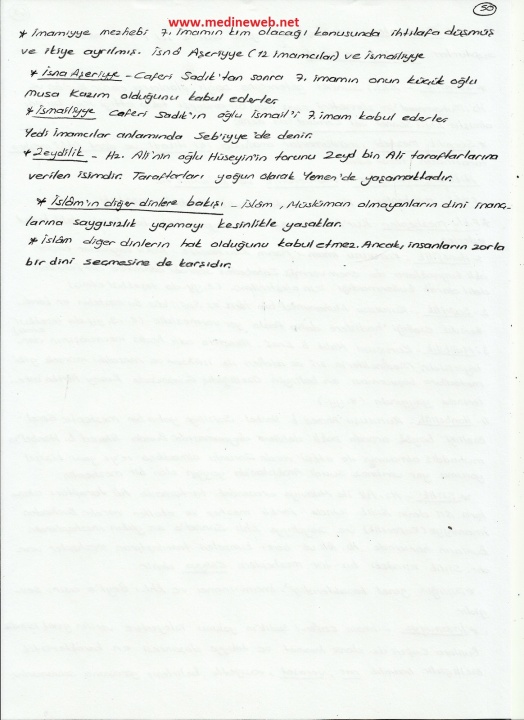 www.medineweb.net
30
* İmamiyye mezhebi 7. imamın kim olacağı konusunda ihtilafa düşmüş
ve ikiye ayrılmış. İsnâ Aşeriyye (12 imamcılar) ve İsmailiyye
* İsna Aşeriyye - Caferi Sadık'tan sonra 7. imamın onun küçük oğlu
musa Kazım olduğunu kabul ederler
* İsmailiyye Caferi Sadık'ın oğlu İsmail'i 7. imam kabul ederler
Yedi imamcılar anlamında Seb'iyye'de denir.
* Zeydilik - Hz. Ali'nin oğlu Hüseyin'in torunu Zeyd bin Ali taraftarlarına
verilen isimdir. Taraftarları yoğun olarak Yemen'de yaşamaktadır.
* İslâm'ın diğer dinlere bakışı - İslâm, Müslüman olmayanların dini inanç-
larına saygısızlık yapmayı kesinlikle yasaklar.
* İslâm diğer dinlerin hak olduğunu kabul etmez. Ancak, insanların zorla
bir dini seçmesine de karşıdır.